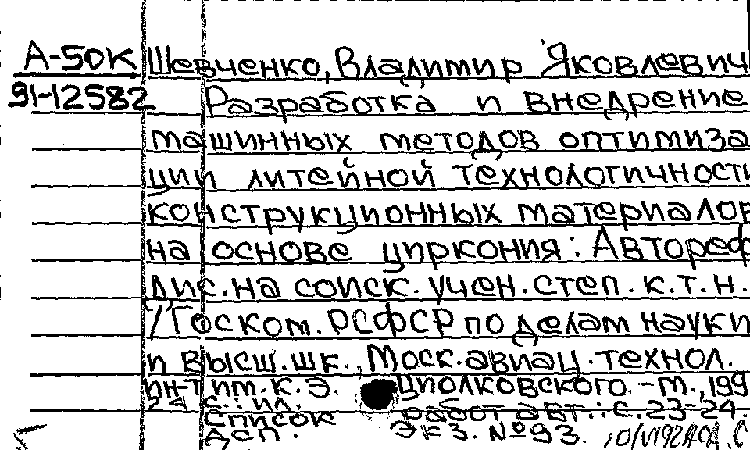 А-50К Шевченко, Владимир Яковлевич
91-12582 Разработка и внедрение
машинных методов оптимиза
ции литейной технологичности
конструкционных материалов
на основе циркония: Автореф
дис. на соиск. учен. степ. к.т.н.
/Госком. РСФСР по делам науки
и высш. шк., Моск. авиац. технол.
ин-т им. К.Э. Циолковского. - М., 199
с.: ил.
Список работ авт.: с. 23-24.
ДСП. Экз. №93.